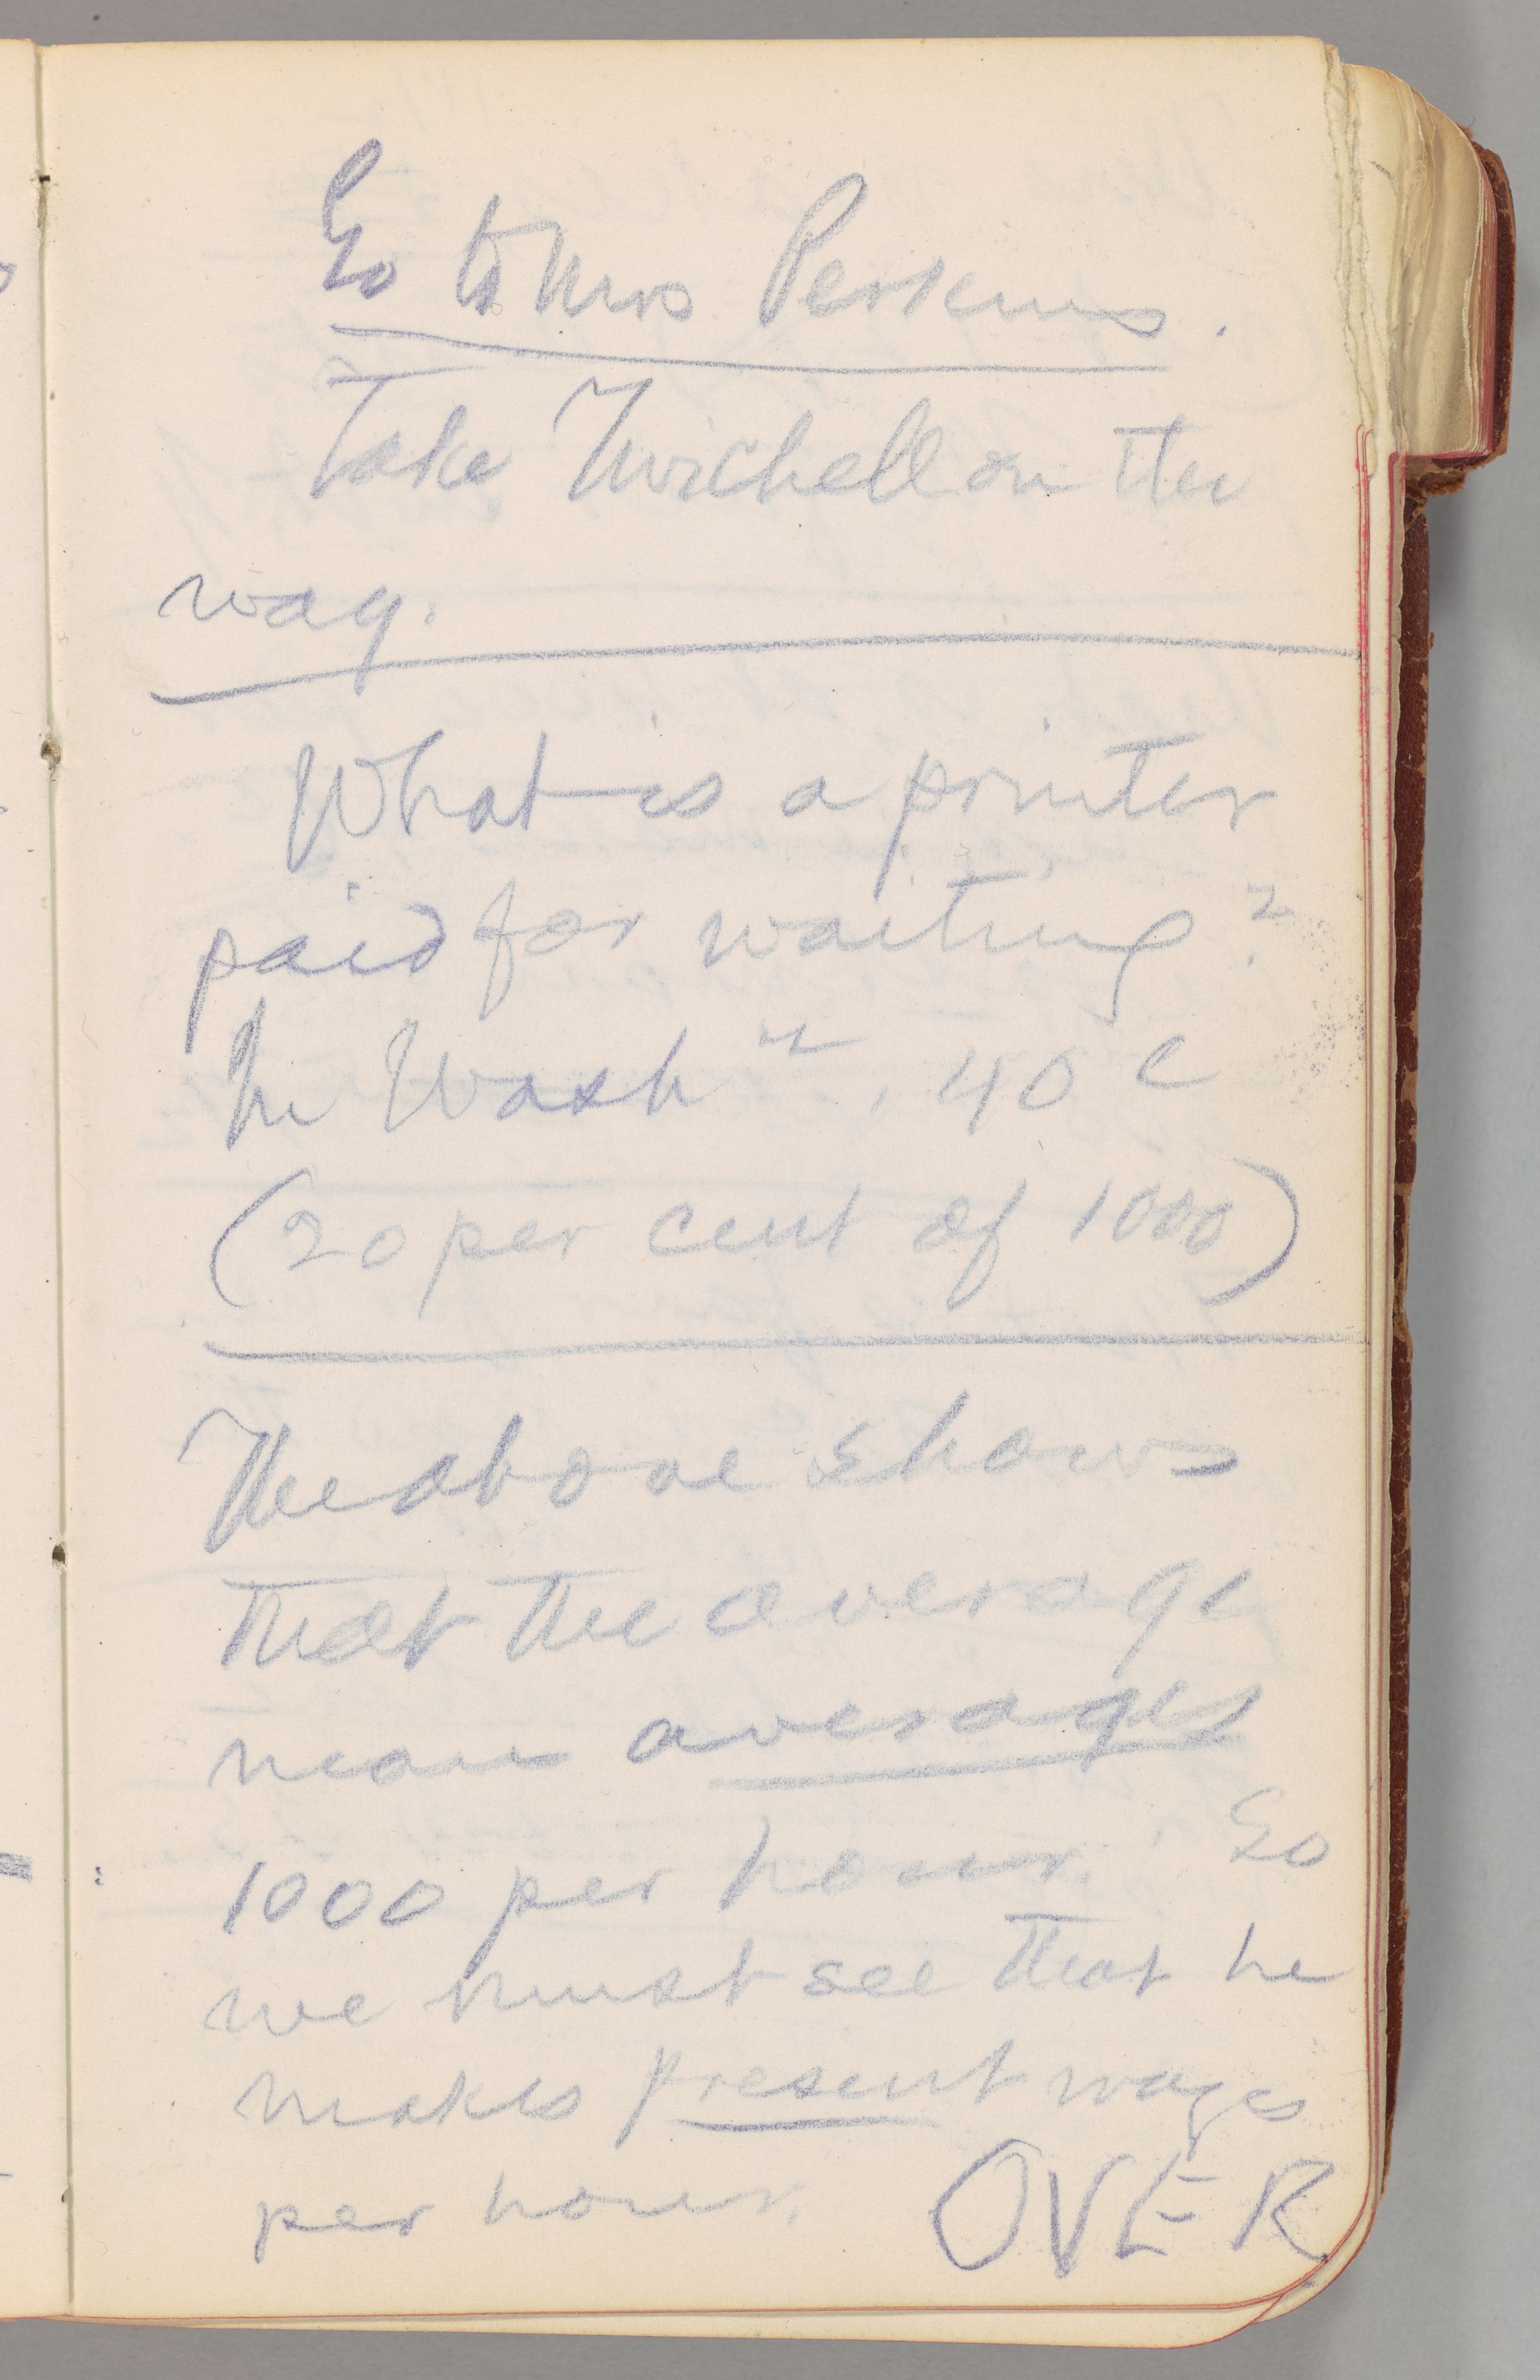 Go to Mrs Perkins.
Take Twichell on the
way.
What is a printer
paid for waiting?
In Washn, 40 c
(20 per cent of 1000)
The above shows
that the average
man averages
1000 per hour. So
we must see that he
makes present wages
per hour. OVER